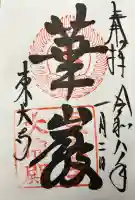 奉拝
令和八年
一月二日
華厳
東大寺